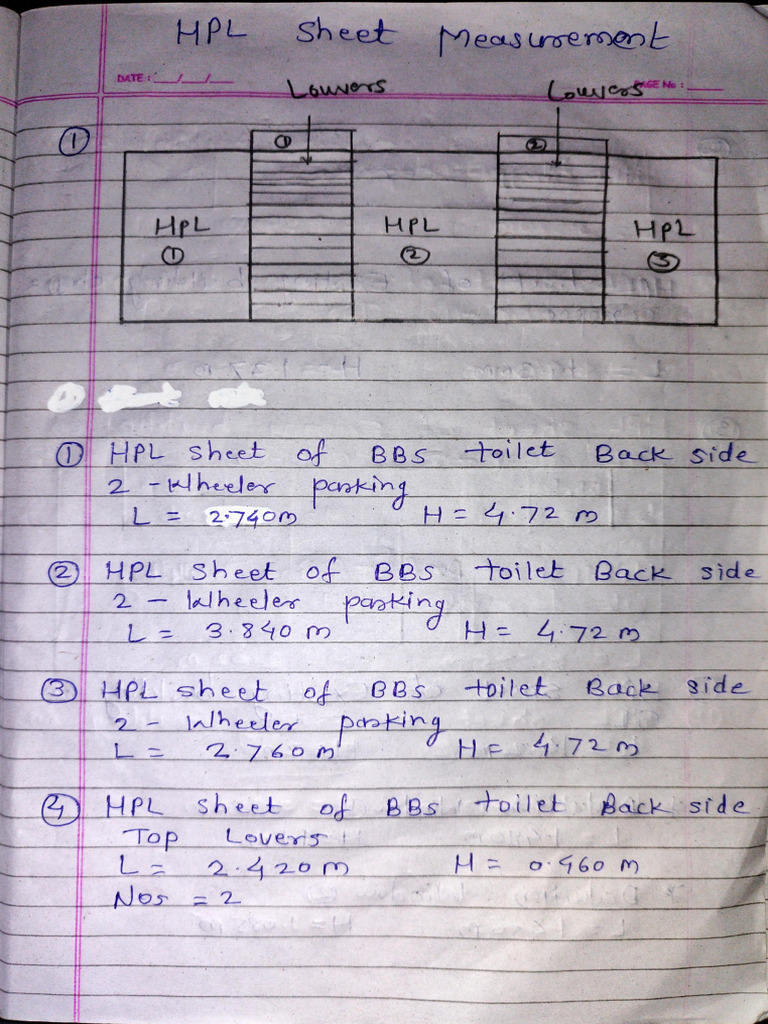 HPL Sheet Measurement
DATE: __/__/__
PAGE No: ____
Louvers Louvers
① ① ②
HPL HPL HPL
① ② ③
① HPL sheet of BBS toilet Back side
2 - Wheeler parking
L = 2.740m H = 4.72 m
② HPL Sheet of BBS toilet Back side
2 - Wheeler parking
L = 3.840 m H = 4.72 m
③ HPL sheet of BBS toilet Back side
2 - Wheeler parking
L = 2.760 m H = 4.72 m
④ HPL sheet of BBS toilet Back side
Top Lovers
L = 2.420 m H = 0.460 m
Nos = 2